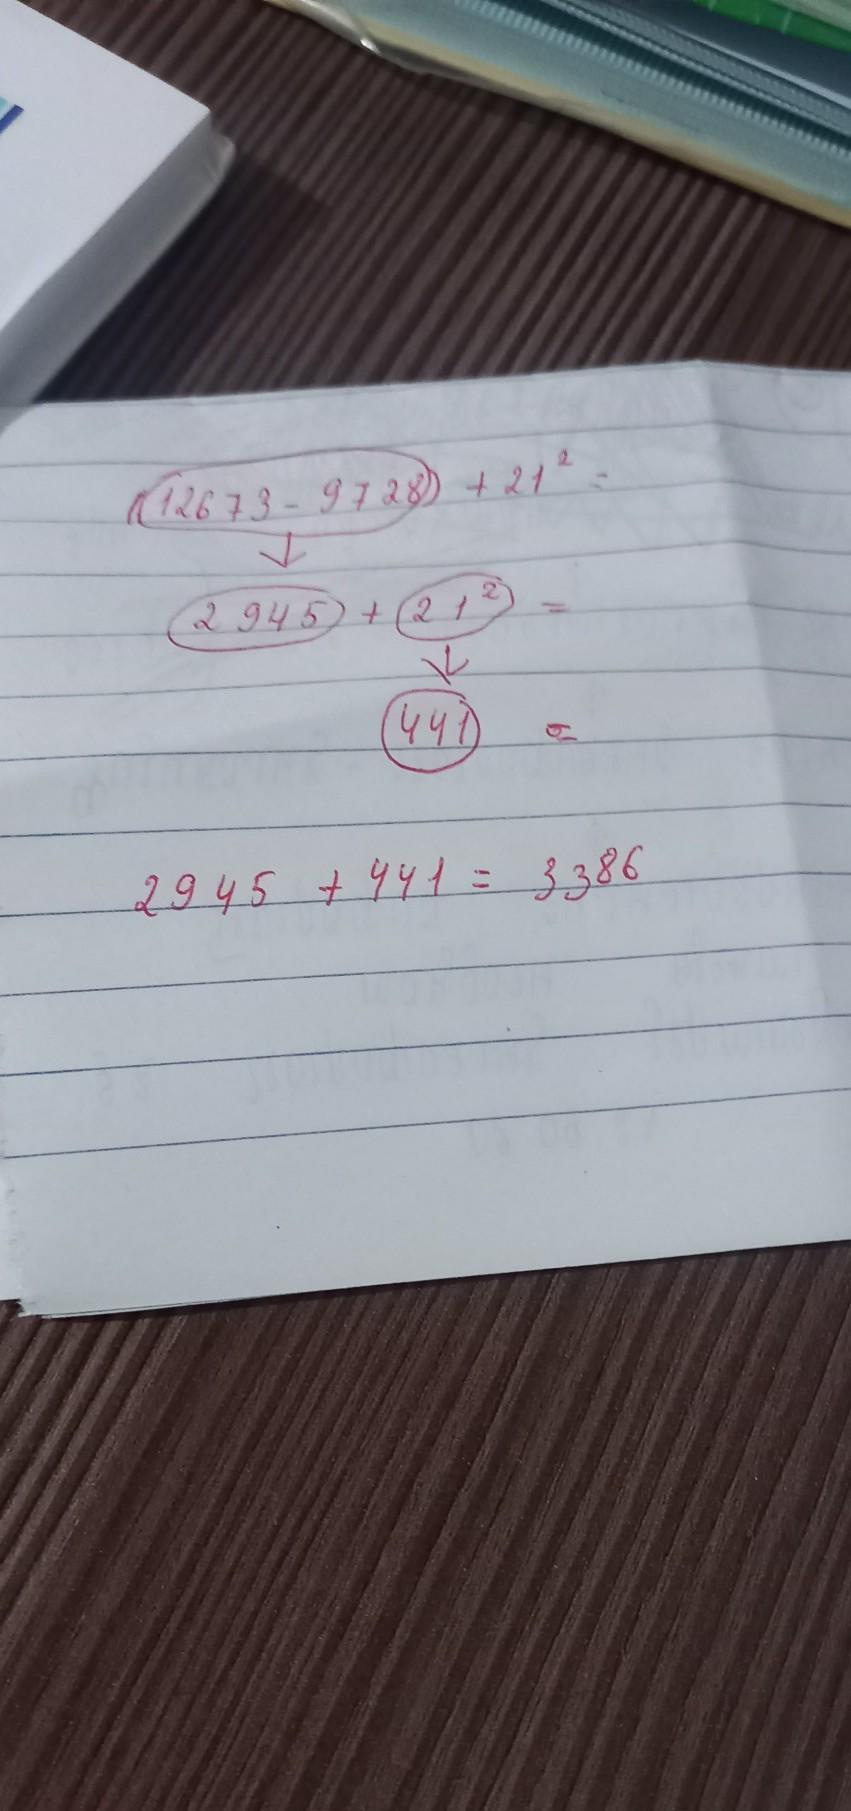 (12673 - 9728) + 21² =
2945 + 21² =
441 =
2945 + 441 = 3386